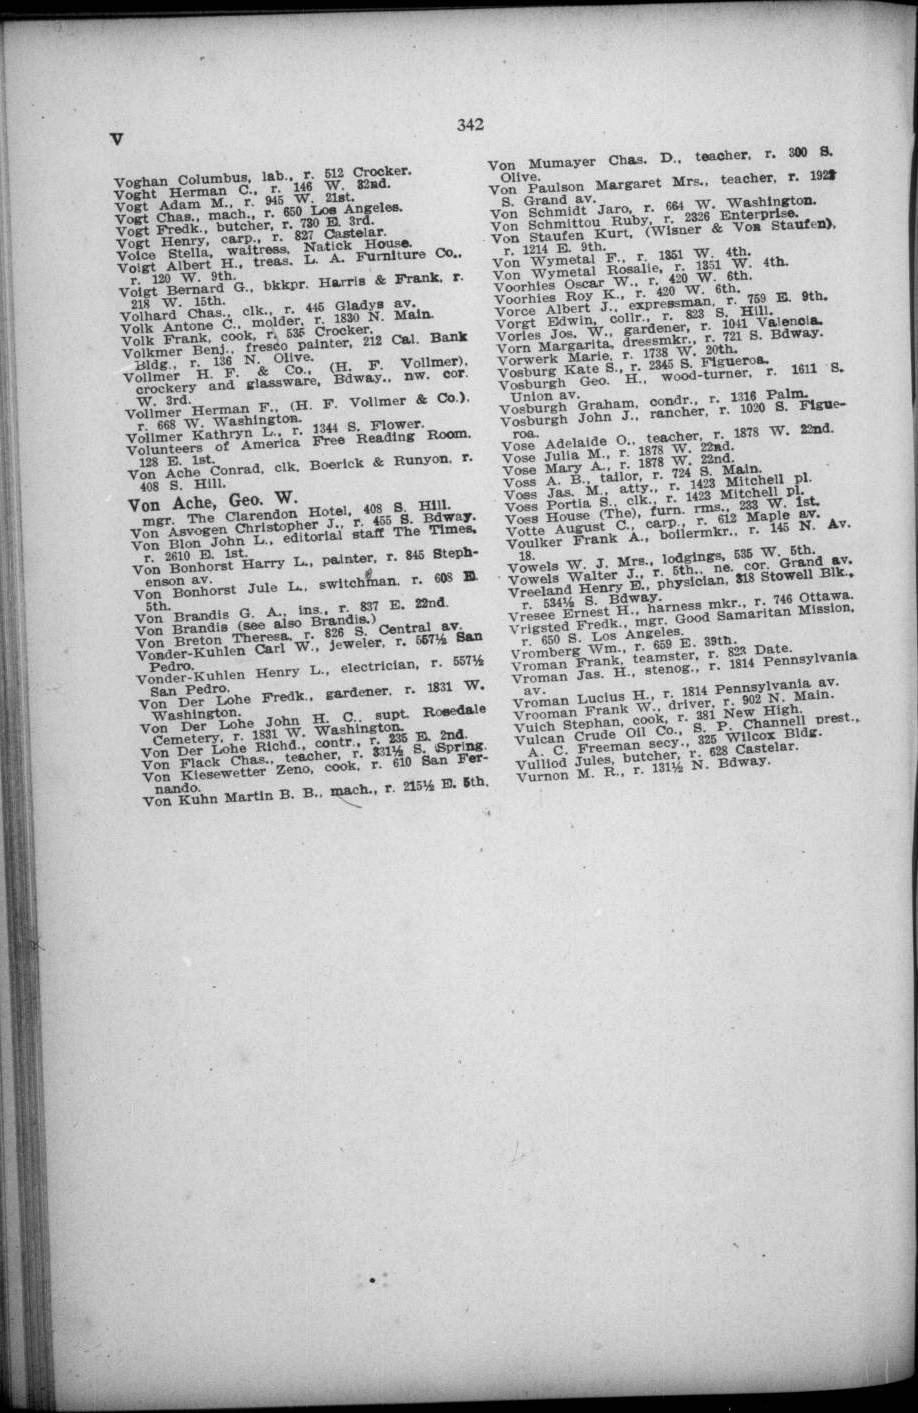 342
V
Voghan Columbus, lab., r. 512 Crocker.
Voght Herman C., r. 146 W. 32nd.
Vogt Adam M., r. 945 W. 21st.
Vogt Chas., mach., r. 650 Los Angeles.
Vogt Fredk., butcher, r. 730 E. 3rd.
Vogt Henry, carp., r. 827 Castelar.
Voice Stella, waitress, Natick House.
Voigt Albert H., treas. L. A. Furniture Co.,
r. 120 W. 9th.
Voigt Bernard G., bkkpr. Harris & Frank, r.
218 W. 15th.
Volhard Chas., clk., r. 445 Gladys av.
Volk Antone C., molder, r. 1830 N. Main.
Volk Frank, cook, r. 535 Crocker.
Volkmer Benj., fresco painter, 212 Cal. Bank
Bldg., r. 136 N. Olive.
Vollmer H. F. & Co., (H. F. Vollmer),
crockery and glassware, Bdway., nw. cor.
W. 3rd.
Vollmer Herman F., (H. F. Vollmer & Co.),
r. 668 W. Washington.
Vollmer Kathryn L., r. 1344 S. Flower.
Volunteers of America Free Reading Room,
128 E. 1st.
Von Ache Conrad, clk. Boerick & Runyon, r.
408 S. Hill.
Von Ache, Geo. W.
mgr. The Clarendon Hotel, 408 S. Hill.
Von Asvogen Christopher J., r. 455 S. Bdway.
Von Blon John L., editorial staff The Times,
r. 2610 E. 1st.
Von Bonhorst Harry L., painter, r. 845 Steph-
enson av.
Von Bonhorst Jule L., switchman, r. 608 E.
5th.
Von Brandis G. A., ins., r. 837 E. 22nd.
Von Brandis (see also Brandis.)
Von Breton Theresa, r. 826 S. Central av.
Vonder-Kuhlen Carl W., jeweler, r. 557½ San
Pedro.
Vonder-Kuhlen Henry L., electrician, r. 557½
San Pedro.
Von Der Lohe Fredk., gardener, r. 1831 W.
Washington.
Von Der Lohe John H. C., supt. Rosedale
Cemetery, r. 1831 W. Washington.
Von Der Lohe Richd., contr., r. 235 E. 2nd.
Von Flack Chas., teacher, r. 331½ S. Spring.
Von Kiesewetter Zeno, cook, r. 610 San Fer-
nando.
Von Kuhn Martin B. B., mach., r. 215½ E. 5th.
Von Mumayer Chas. D., teacher, r. 300 S.
Olive.
Von Paulson Margaret Mrs., teacher, r.
S. Grand av.
Von Schmidt Jaro, r. 664 W. Washington.
Von Schmittou Ruby, r. 2326 Enterprise.
Von Staufen Kurt, (Wisner & Von Staufen),
r. 1214 E. 9th.
Von Wymetal F., r. 1351 W. 4th.
Von Wymetal Rosalie, r. 1351 W. 4th.
Voorhies Oscar W., r. 420 W. 6th.
Voorhies Roy K., r. 420 W. 6th.
Vorce Albert J., expressman, r. 759 E. 9th.
Vorgt Edwin, collr., r. 823 S. Hill.
Vories Jos. W., gardener, r. 1041 Valencia.
Vorn Margarita, dressmkr., r. 721 S. Bdway.
Vorwerk Marie, r. 1738 W. 20th.
Vosburg Kate S., r. 2345 S. Figueroa.
Vosburgh Geo. H., wood-turner, r. 1611 S.
Union av.
Vosburgh Graham, condr., r. 1316 Palm.
Vosburgh John J., rancher, r. 1020 S. Figue-
roa.
Vose Adelaide O., teacher, r. 1878 W. 22nd.
Vose Julia M., r. 1878 W. 22nd.
Vose Mary A., r. 1878 W. 22nd.
Voss A. B., tailor, r. 724 S. Main.
Voss Jas. M., atty., r. 1423 Mitchell pl.
Voss Portia S., clk., r. 1423 Mitchell pl.
Voss House (The), furn. rms., 233 W. 1st.
Votte August C., carp., r. 612 Maple av.
Voulker Frank A., boilermkr., r. 145 N. Av.
18.
Vowels W. J. Mrs., lodgings, 535 W. 5th.
Vowels Walter J., r. 5th., ne. cor. Grand av.
Vreeland Henry E., physician, 318 Stowell Blk.,
r. 534½ S. Bdway.
Vresee Ernest H., harness mkr., r. 746 Ottawa.
Vrigsted Fredk., mgr. Good Samaritan Mission,
r. 650 S. Los Angeles.
Vromberg Wm., r. 659 E. 39th.
Vroman Frank, teamster, r. 823 Date.
Vroman Jas. H., stenog., r. 1814 Pennsylvania
av.
Vroman Lucius H., r. 1814 Pennsylvania av.
Vrooman Frank W., driver, r. 902 N. Main.
Vuich Stephan, cook, r. 381 New High.
Vulcan Crude Oil Co., S. P. Channell prest.,
A. C. Freeman secy., 325 Wilcox Bldg.
Vulliod Jules, butcher, r. 628 Castelar.
Vurnon M. R., r. 131½ N. Bdway.